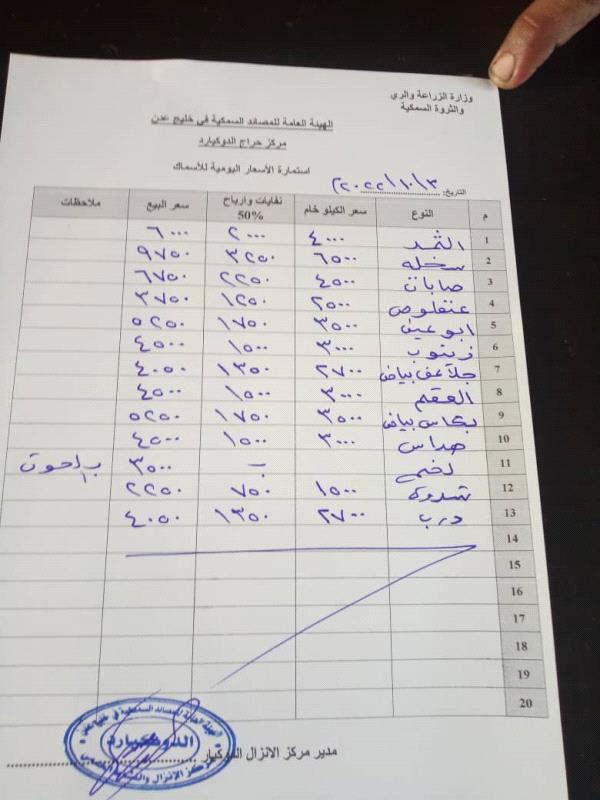 وزارة الزراعة والري
والثروة السمكية
الهيئة العامة للمصائد السمكية في خليج عدن
مركز حراج الدوكيارد
استمارة الأسعار اليومية للأسماك
التاريخ: ٢٠٢٢/١٠/٣
م النوع سعر الكيلو خام نفايات وارباح 50% سعر البيع ملاحظات
1 الثمد ٤٠٠٠ ٢٠٠٠ ٦٠٠٠
2 سخله ٦٥٠٠ ٣٢٥٠ ٩٧٥٠
3 صابات ٤٥٠٠ ٢٢٥٠ ٦٧٥٠
4 عنفلوص ٢٥٠٠ ١٢٥٠ ٣٧٥٠
5 ابو عين ٣٥٠٠ ١٧٥٠ ٥٢٥٠
6 زينوب ٣٠٠٠ ١٥٠٠ ٤٥٠٠
7 بياض ٢٧٠٠ ١٣٥٠ ٤٠٥٠
8 العقم ٣٠٠٠ ١٥٠٠ ٤٥٠٠
9 بكاس بياض ٣٥٠٠ ١٧٥٠ ٥٢٥٠
10 هداس ٣٠٠٠ ١٥٠٠ ٤٥٠٠
11 لخمي ٣٥٠٠
12 شدوة ١٥٠٠ ٧٥٠ ٢٢٥٠
13 درب ٢٧٠٠ ١٣٥٠ ٤٠٥٠
14
15
16
17
18
19
20
مدير مركز الانزال الدوكيار
الهيئة العامة للمصائد السمكية في خليج عدن
الدوكيارد
مركز الانزال